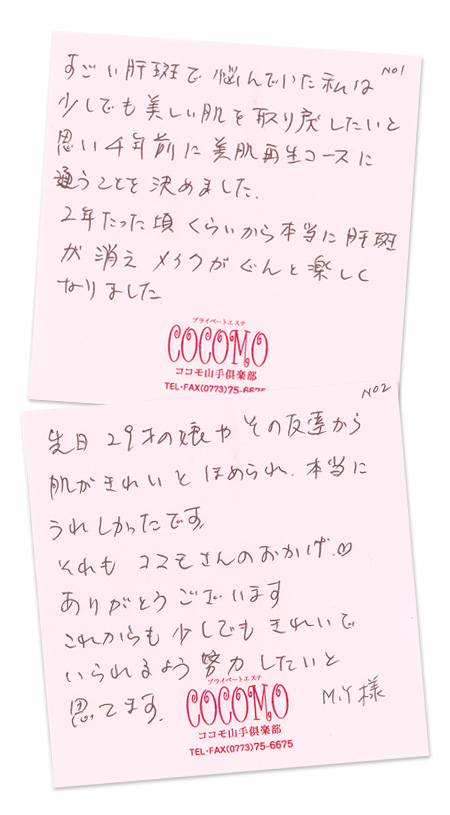 NO1
すごい肝斑で悩んでいた私は
少しでも美しい肌を取り戻したいと
思い4年前に美肌再生コースに
通うことを決めました.
2年たった頃くらいから本当に肝斑
が消えメイクがぐんと楽しく
なりました
プライベートエステ
COCOMO
ココモ山手倶楽部
TEL・FAX(0773)75-6675
NO2
先日29才の娘やその友達から
肌がきれいとほめられ、本当に
うれしかったです
それもココモさんのおかげ.♡
ありがとうございます
これからも少しでもきれいで
いられるよう努力したいと
思ってます.
M.Y様
プライベートエステ
COCOMO
ココモ山手倶楽部
TEL・FAX(0773)75-6675